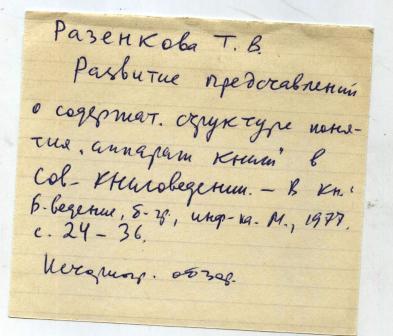 Разенкова Т. В.
Развитие представлений
о содержат. структуре поня-
тия „аппарат книги" в
сов. книговедении. – В кн.:
Б-ведение, б-гр., инф-ка. М., 1977.
с. 24 – 36.
обзор.